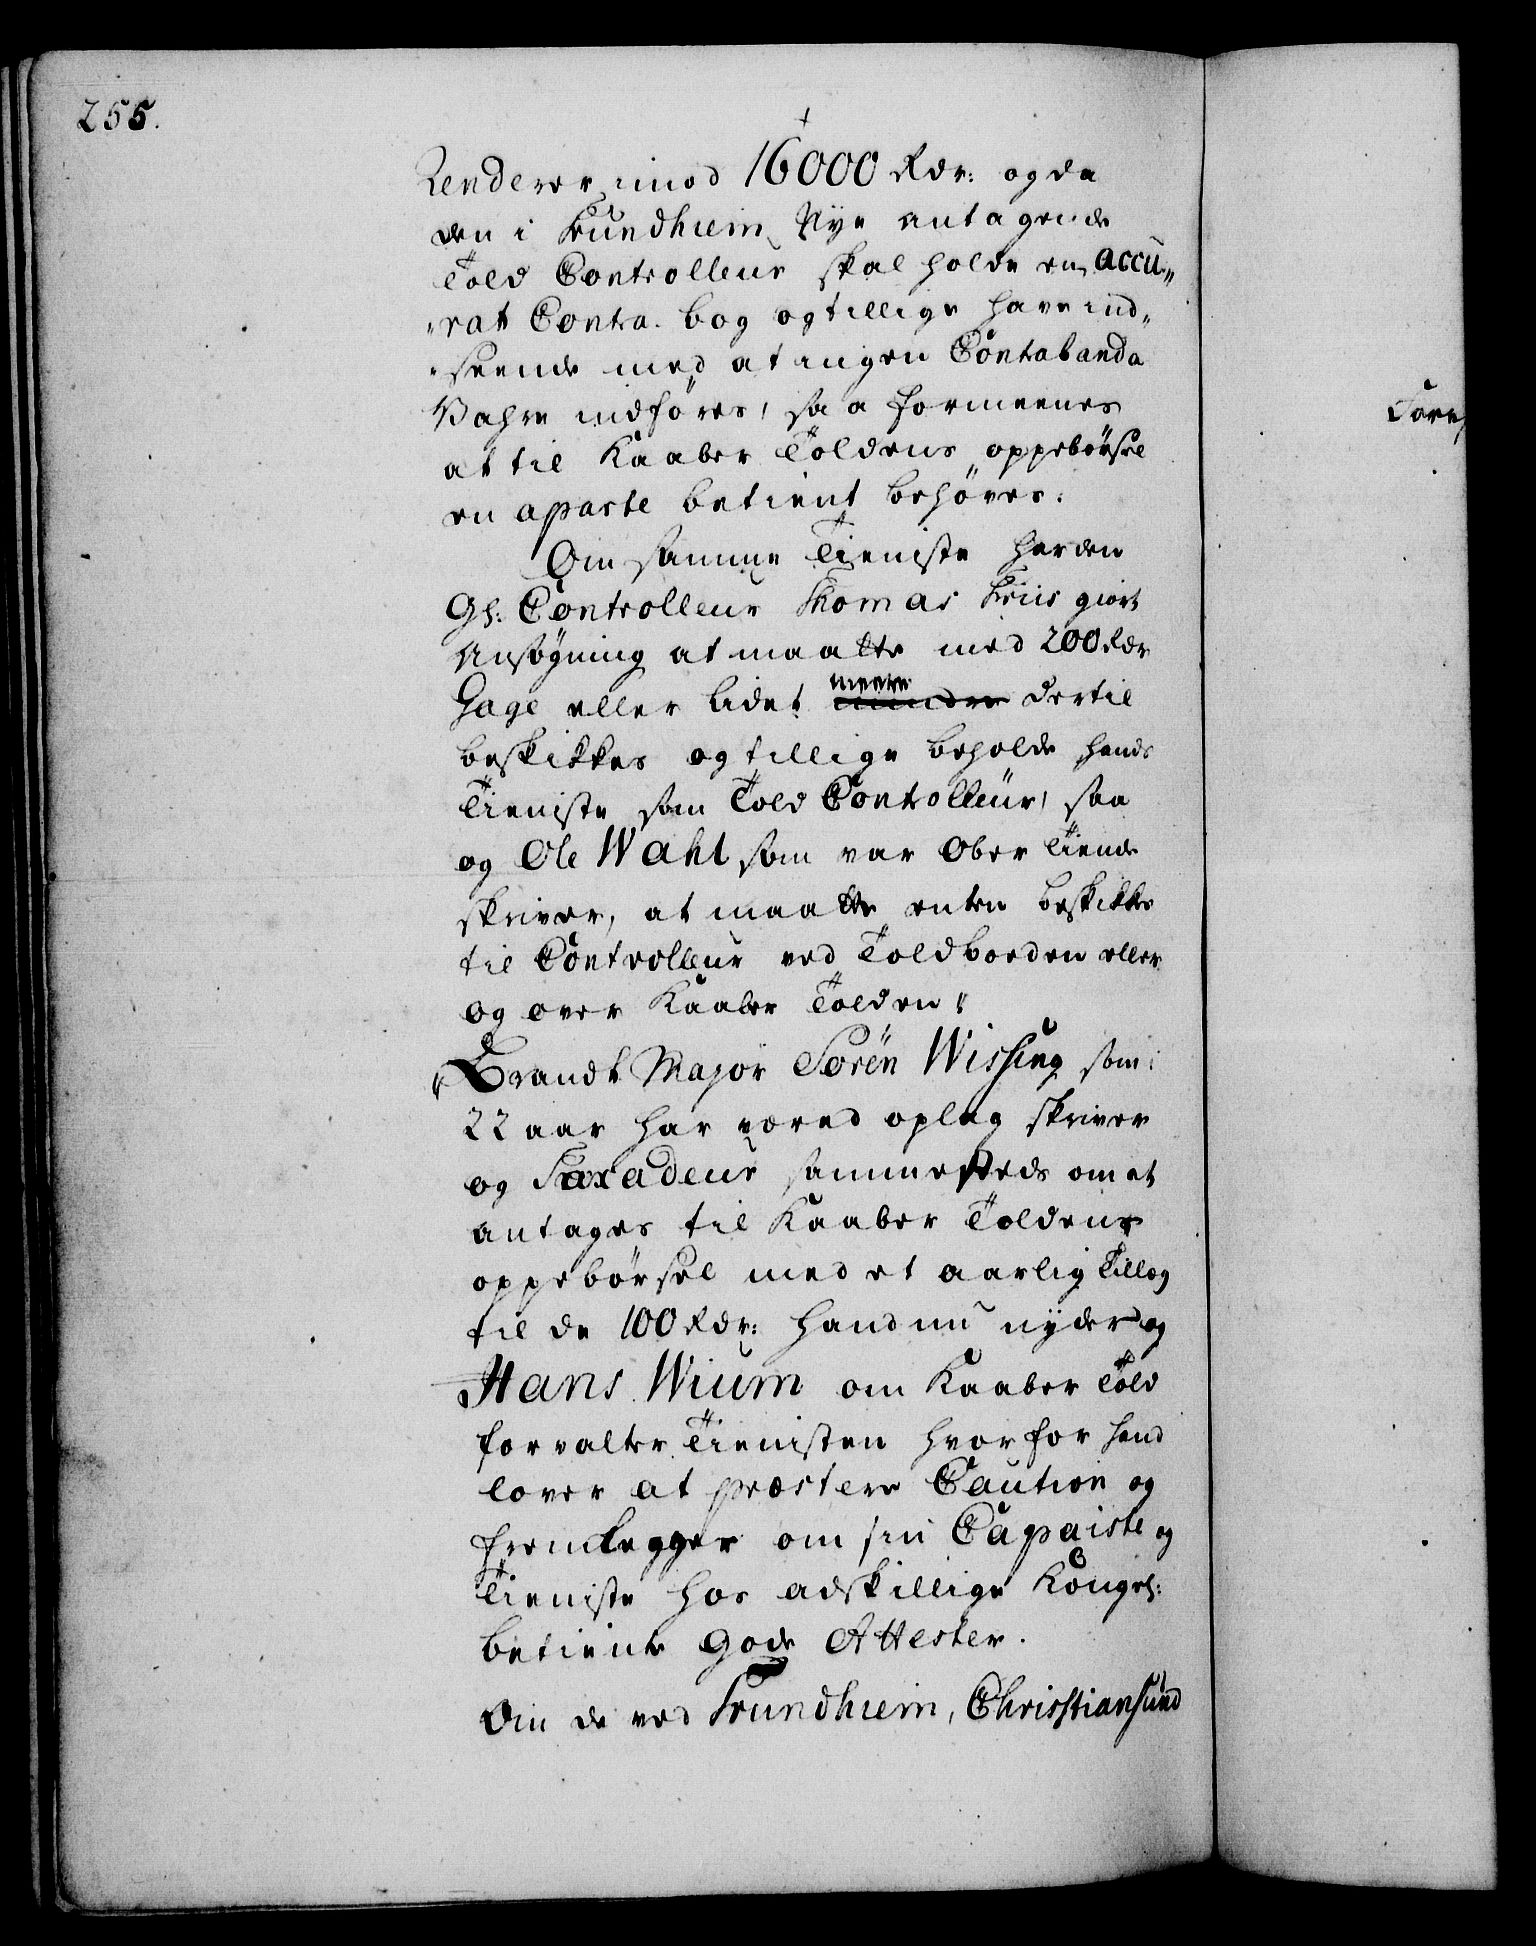 255.
Renderer imod 16000 Rdr: og da
den i Trundhiem Nye antagende
Told Controlleur skal holde en accu„
„rat Contra bog og tillige have ind„
„seende med at ingen Contabanda
Vahre indføres, saa formeenes
at til Kaaber Toldens oppebørsel
en aparte betient behøves.
Om samme Tieniste har den
Gl: Controlleur Thomas Friis giort
Ansøgning at maatte med 200 Rdr
Gage eller lidet meere mindre dertil
beskikkes og tillige beholde hands
Tieniste som Told Controlleur, saa
og Ole Wahl som var Ober Tiende
skriver, at maatte enten beskikkes
til Controlleur ved Toldboeden eller
og over Kaaber Tolden.
Brandt Major Sorën Wissing som i
22 aar har været oplag skriver
og Taxadeur sammesteds om at
antages til Kaaber Toldens
oppebørsel med et aarlig Tillæg
til de 100 Rdr: hand nu nyder og
Hans Wium om Kaaber Told
forvalter Tienisten hvorfor hand
lover at præstere Caution og
fremlegger om sin Capaiste og
Tieniste hos adskillige Kongel:
betiente gode Attester.
Om de ved Trundhiem, Christiansund